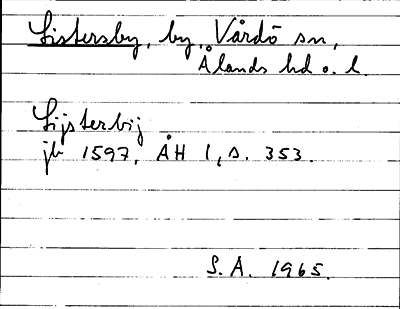 Listersby, by, Vårdö sn,
Ålands hd o. l.
Lijsterbij
jb 1597, ÅH 1, s. 353.
S. A. 1965.